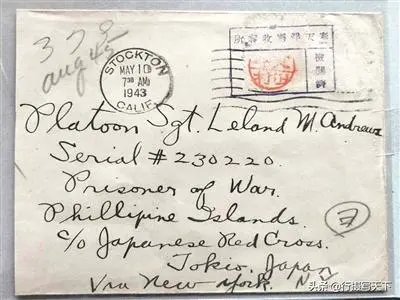 STOCKTON
MAY 10
7 30 AM
1943
CALIF.
Platoon Sgt. Leland M. Andrews
Serial # 230220.
Prisoner of War.
Phillipine Islands.
c/o Japanese Red Cross.
Tokio, Japan
Via New York. N.Y.
头条@行摄写天下